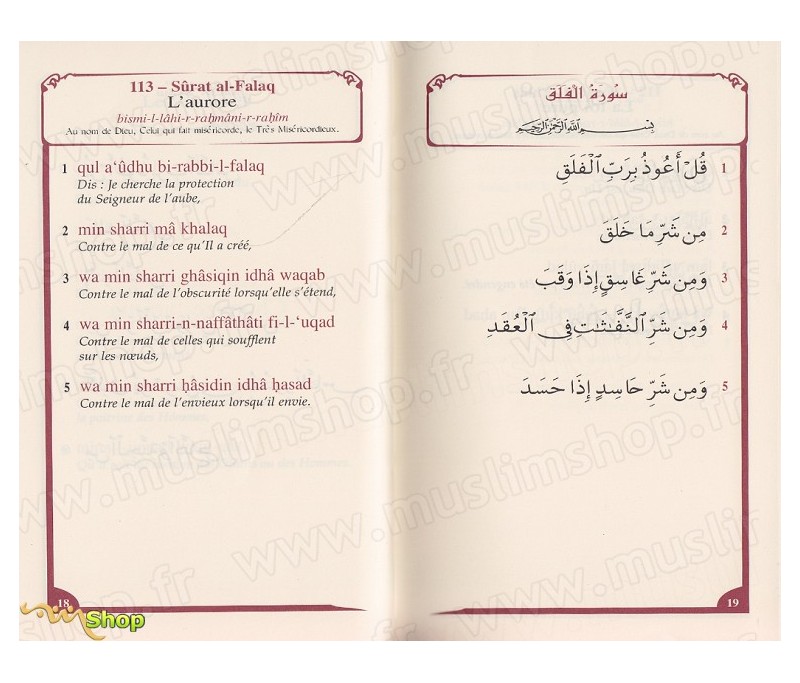 113 – Sûrat al-Falaq
L'aurore
bismi-l-lâhi-r-raḥmâni-r-raḥîm
Au nom de Dieu, Celui qui fait miséricorde, le Très Miséricordieux.
1 qul a‘ûdhu bi-rabbi-l-falaq
Dis : Je cherche la protection
du Seigneur de l'aube,
2 min sharri mâ khalaq
Contre le mal de ce qu'Il a créé,
3 wa min sharri ghâsiqin idhâ waqab
Contre le mal de l'obscurité lorsqu'elle s'étend,
4 wa min sharri-n-naffâthâti fi-l-‘uqad
Contre le mal de celles qui soufflent
sur les nœuds,
5 wa min sharri ḥâsidin idhâ ḥasad
Contre le mal de l'envieux lorsqu'il envie.
18
Shop
سُورَةُ الْفَلَقِ
بِسْمِ اللَّهِ الرَّحْمَٰنِ الرَّحِيمِ
1 قُلْ أَعُوذُ بِرَبِّ ٱلْفَلَقِ
2 مِن شَرِّ مَا خَلَقَ
3 وَمِن شَرِّ غَاسِقٍ إِذَا وَقَبَ
4 وَمِن شَرِّ ٱلنَّفَّٰثَٰتِ فِى ٱلْعُقَدِ
5 وَمِن شَرِّ حَاسِدٍ إِذَا حَسَدَ
19
www.muslimshop.fr